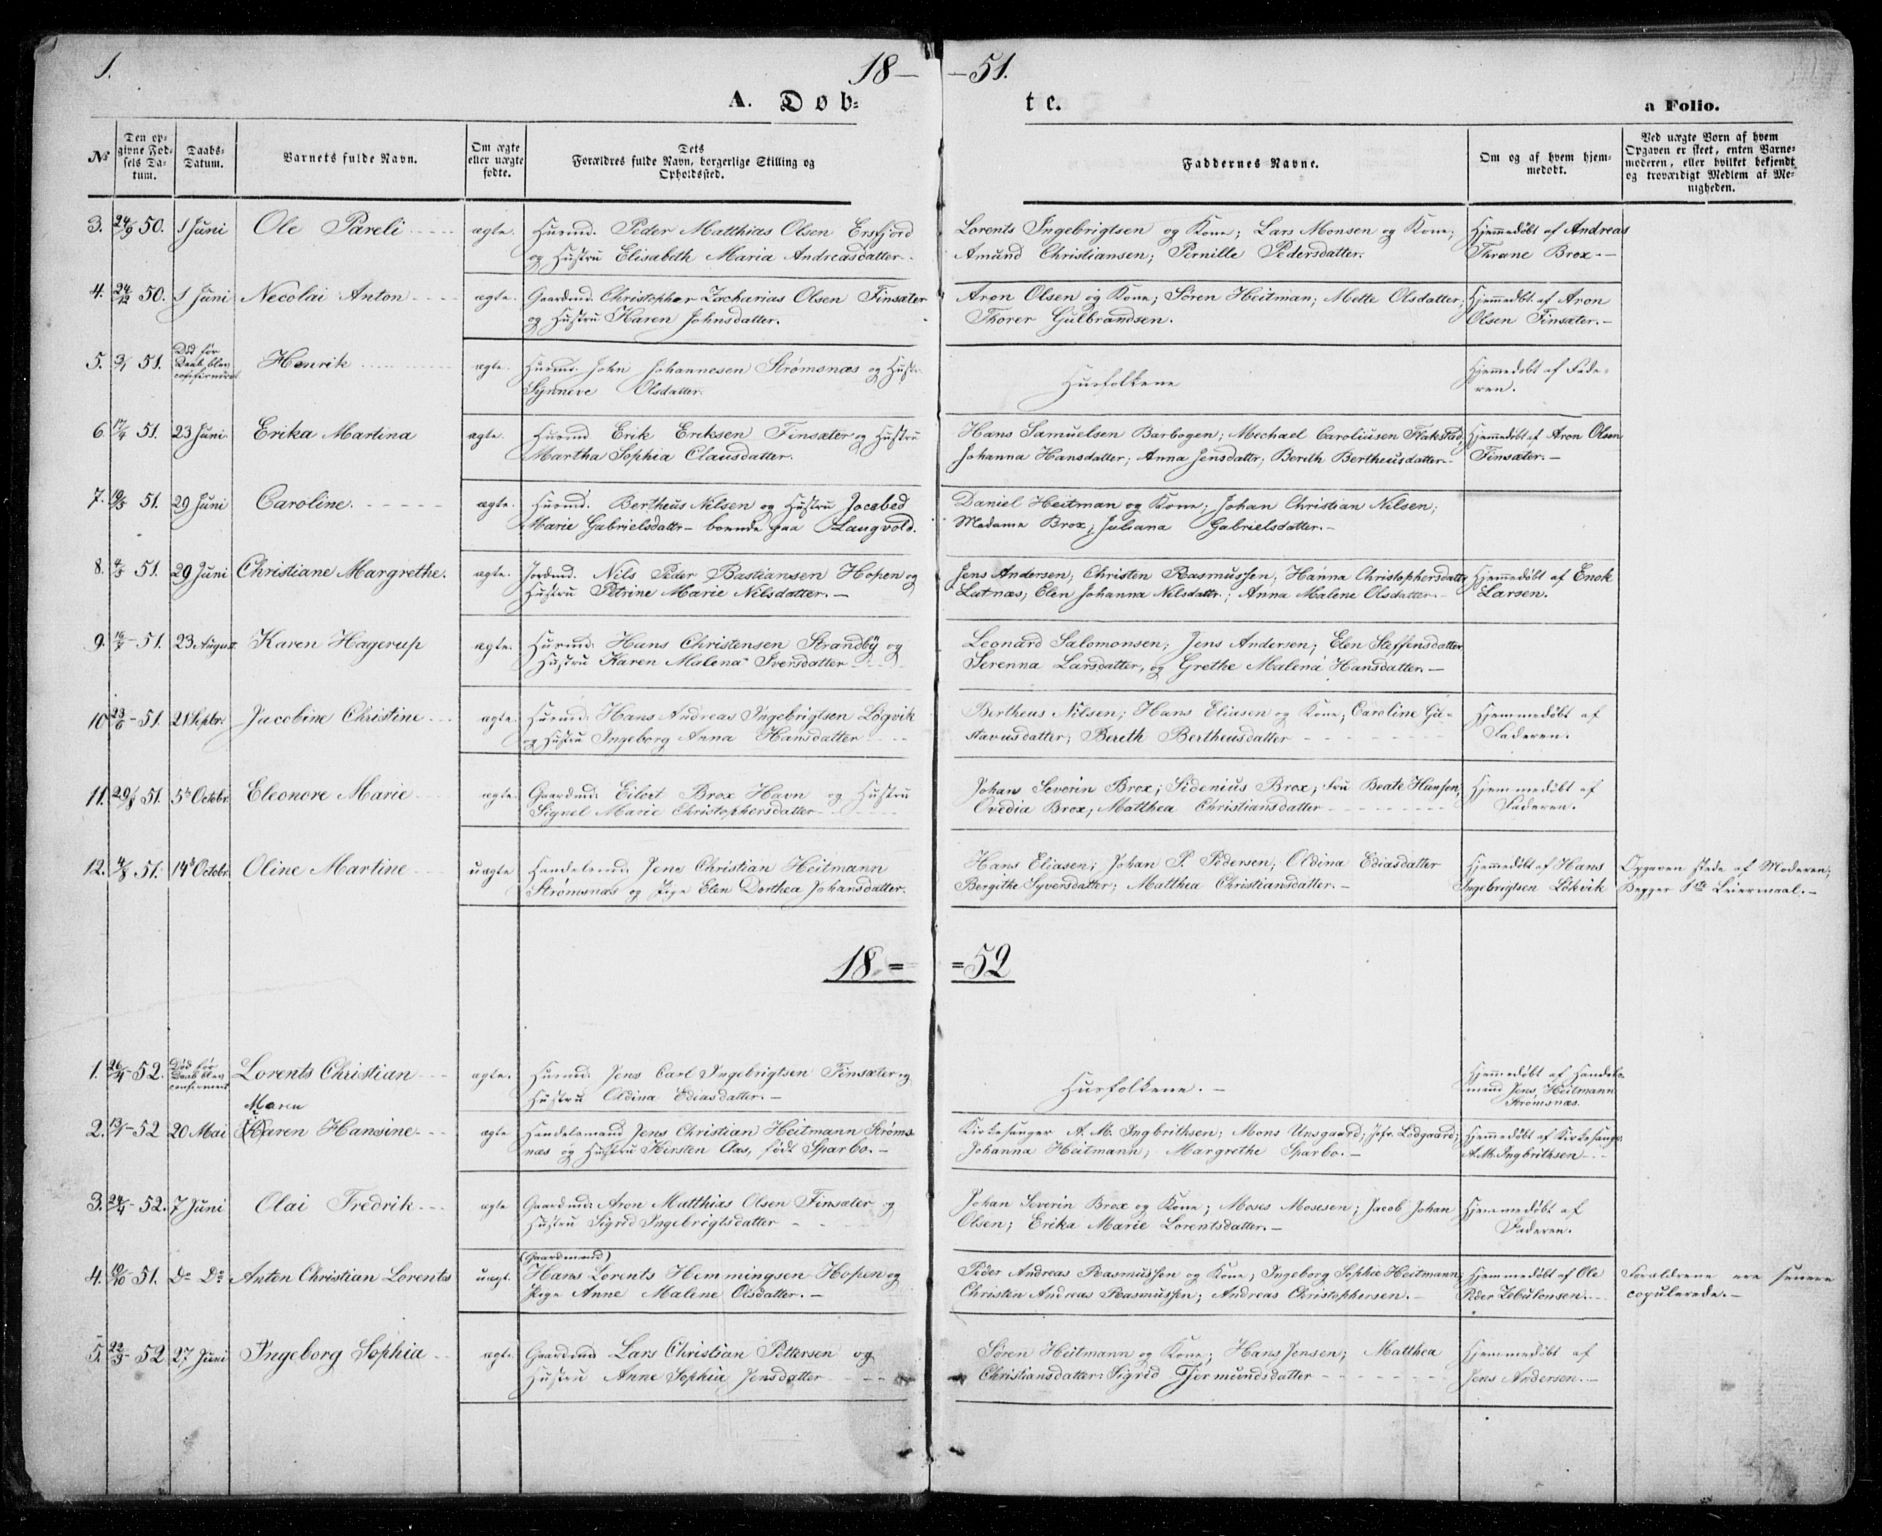 1. 18— —51.
A. Døb= te. a Folio.
№ Den op- givne Fød- sels Da- tum. Daabs- Datum. Barnets fulde Navn. Om ægte eller uægte fødte. Dets Forældres fulde Navn, borgerlige Stilling og Opholdssted. Faddernes Navne. Om og af hvem hjem- medøbt. Ved uægte Børn af hvem Opgaven er skeet, enten Barne- moderen, eller hvilket bekjendt og troværdigt Medlem af Me- nigheden.
3. 24/9 50. 1 Juni Ole Pareli ægte. Huusmd. Peder Matthias Olsen Ersfjord Lorents Ingebrigtsen og Kone; Lars Monsen og Kone; Hjemmedøbt af Andreas
og Hustru Elisabeth Maria Andreasdatter. Amund Christiansen; Pernille Pedersdatter. Thrane Brox.—
4. 24/12 50. 1 Juni Necolai Anton ægte. Gaardmd. Christopher Zacharias Olsen Finsæter Aron Olsen og Kone; Sören Heitman; Mette Olsdatter; Hjemmedöbt af Aron
og Hustru Karen Johnsdatter. Thorer Gulbrandsen. Olsen Finsæter.—
5. 3/1 51. Död för Daab. blev confirmeret Henrik ægte. Huusmd. John Johannesen Strømsnæs og Hustr. Husfolkene Hjemmedöbt af Fade-
Synneve Olsdatter. ren.
6 17/4 51. 23 Juni. Erika Martina ægte. Huusmd. Erik Eriksen Finsæter og Hustru Hans Samuelsen Barbogen; Mechael Caroliusen Flakstad; Hjemmedöbt af Aron Olsen
Martha Sophia Clausdatter. Johanna Hansdatter; Anna Jensdattr; Bereth Bertheusdatter.— Finsæter.—
7. 51. 29 Juni Caroline. ægte. Huusmd. Bertheus Nilsen og Hustru Jocobed Daniel Heitman og Kone; Johan Christian Nilsen;
Marie Gabrielsdattr— boende paa Laugvold. Madame Brox; Juliana Gabrielsdatter.—
8. 51. 29 Juni Christiane Margrethe. ægte. Jordmd. Nils Peder Bastiansen Hopen og Jens Andersen; Christen Rasmussen; Hanna Christophersdattr Hjemmedöbt af Enok
Hustru Petrine Marie Nilsdatter.— Lutnæs; Elen Johanna Nilsdattr; Anna Malene Olsdatter. Larsen.
9. 51. 23 August. Karen Hagerup ægte. Huusmd. Hans Christensen Strandby og Leonard Salomonsen; Jens Andersen; Elen Steffensdatter
Hustru Karen Malena Iversdatter Serenna Larsdatter, og Grethe Malena Hansdatter.—
10 23/6 51. 21 Septbr. Jacobine Christine ægte. Huusmd. Hans Andreas Ingebrigtsen Løgvik Bertheus Nilsen; Hans Eliasen og Kone; Caroline Gu- Hjemmedöbt af
og Hustru Ingeborg Anna Hansdatter stavusdatter; Bereth Bertheusdatter Faderen.
11. 29/8 51. 5t Octobr. Eleonore Marie ægte. Gaardmd. Eilert Brox Havn og Hustru Johan Severin Brox; Sidenius Brox; Fru Beate Hansen; Hjemmedöbt af
Signel Marie Christophersdatter Ovedia Brox; Matthea Christiansdatter Faderen.
12. 4/8 51. 14t Octobr. Oline Martine uægte Handelsmd. Jens Christian Heitmann Hans Eliasen; Johan P. Pedersen; Oldina Ediasdatter Hjemmedöbt af Hans Opgaven skede af Moderen;
Strømsnæs og Pige Elen Dorthea Johansdatter. Bergithe Syversdatter; Matthea Christiansdatter.— Ingebrigtsen Lökvik Begges 1ste Leiermaal.—
18= =52
1. 26/4 52. Död för Daab. blev confirmeret Lorents Christian ægte. Huusmd. Jens Carl Ingebrigtsen Finsæter og Husfolkene.— Hjemmedöbt af Handels-
Hustru Oldina Ediasdatter.— mand Jens Heitmann
Strömsnæs.
Maren
2. 52 20 Mai Karen Hansine ægte Handelsmand Jens Christian Heitmann Ströms- Kirkesanger A. M. Ingbrithsen; Mons Unsgaard; Lodgaard; Hjemmedöbt af Kirkesanger
næs og Hustru Kirsten Clas, född Sparbo.— Johanna Heitmann; Margrethe Sparbo.— A. M. Ingbrithsen
3. 24/4 52. 7 Juni Olai Fredrik ægte Gaardmd. Aron Matthias Olsen Finsæter og Johan Severin Brox og Kone; Moses Mosesen; Jacob Johan Hjemmedöbt af
Hustru Sigrid Ingebrigtsdatter Olsen; Erika Marie Lorentsdatter.— Faderen.
(Gaardmand)
4. 51. Do Do Anton Christian Lorents uægt. Hans Lorents Hemmingsen Hopen og Peder Andreas Rasmussen og Kone; Ingeborg Sophie Heitmann; Hjemmedöbt af Ole Forældrene ere senere
Pige Anne Malene Olsdatter.— Christen Andreas Rasmussen; Andreas Christophersen.— Peder Zebulonsen. copulerede.—
5. 22/3 52 27 Juni Ingeborg Sophia ægte. Gaardmd. Lars Christian Pettersen og Sören Heitmann og Kone; Hans Jensen; Matthea Hjemmedöbt af
Hustru Anne Sophia Jensdatter Christiansdatter; Sigrid Tjermundsdatter Jens Andersen.—